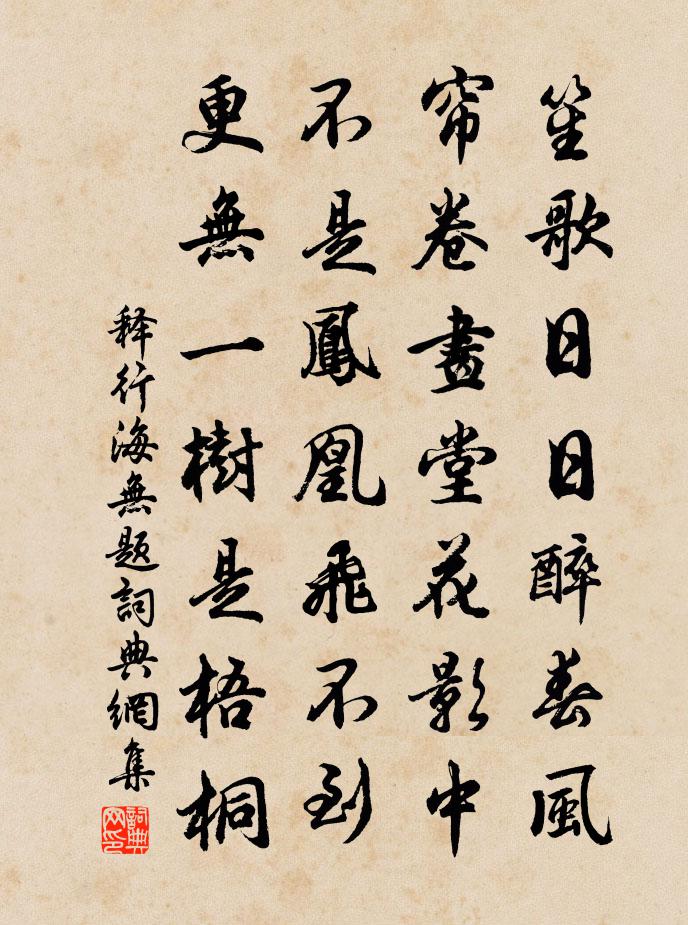 笙歌日日醉春風
帘卷畫堂花影中
不是鳳凰飛不到
更無一樹是梧桐
释行海無题詞典網集
詞典网印